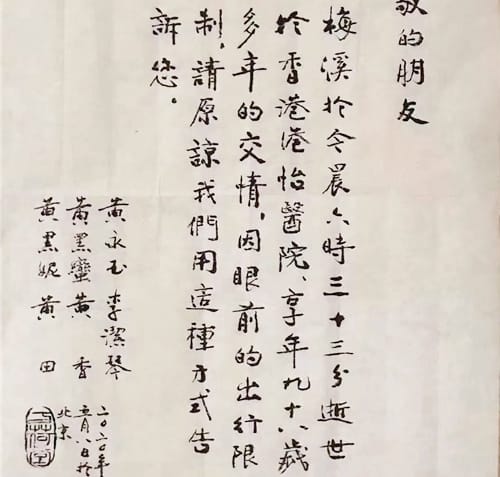 敬的朋友
梅溪於今晨六時三十三分逝世
於香港港怡醫院、享年九十六歲
多年的交情，因眼前的出行限
制，請原諒我們用這種方式告
訴您。
黃永玉 李潔琴
黃黑蠻 黃香
黃黑妮 黃田
二〇二〇年
五月八日於
北京